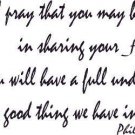 pray that you may b
in sharing your
u will have a full und
good thing we have i
Phil